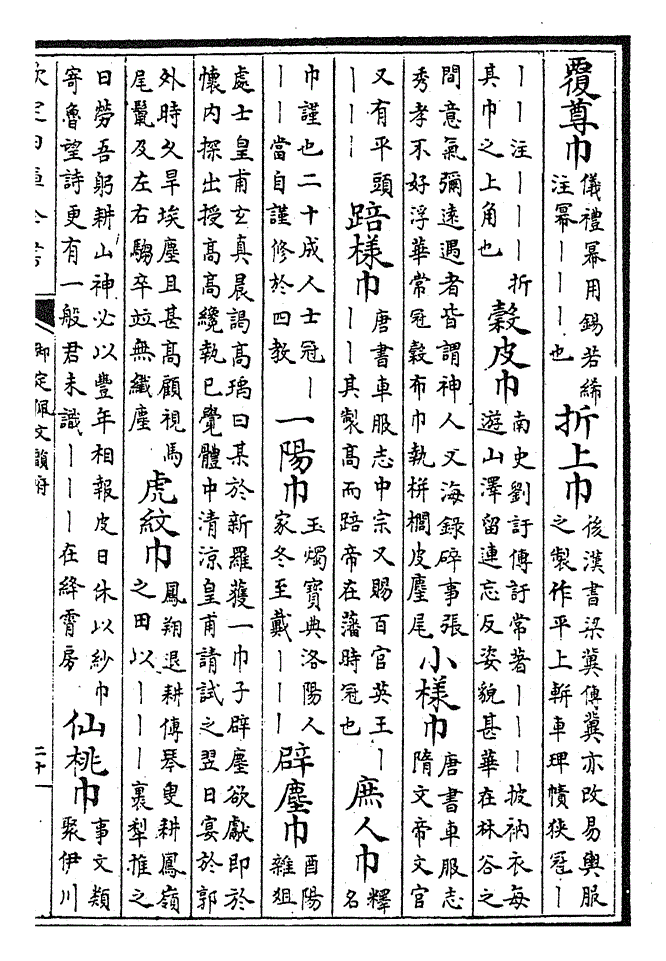 覆尊巾
儀禮冪用錫若絺
注冪丨丨丨也
折上巾
後漢書梁冀傳冀亦改易輿服
之製作平上軿車埤幘狹冠丨
丨丨注丨丨丨折
其巾之上角也
榖皮巾
南史劉訏傳訏常著丨丨丨披衲衣每
遊山澤留連忘反姿貌甚華在林谷之
間意氣彌遠遇者皆謂神人又海錄碎事張
秀孝不好浮華常冠榖布巾執栟櫚皮麈尾
小樣巾
唐書車服志
隋文帝文官
又有平頭
丨丨丨
踣樣巾
唐書車服志中宗又賜百官英王丨
丨丨其製高而踣帝在藩時冠也
庶人巾
釋
名
巾謹也二十成人士冠丨
丨丨當自謹修於四教
一陽巾
玉燭寶典洛陽人
家冬至戴丨丨丨
辟塵巾
酉陽
雜俎
處士皇甫玄真晨謁高瑀曰某於新羅獲一巾子辟塵欲獻即於
懷內探出授高高纔執已覺體中清涼皇甫請試之翌日宴於郭
外時久旱埃塵且甚高顧視馬
尾鬣及左右騶卒竝無纖塵
虎紋巾
鳳翔退耕傳琴叟耕鳳嶺
之田以丨丨丨裹犁推之
日勞吾躬耕山神必以豐年相報皮日休以紗巾
寄魯望詩更有一般君未識丨丨丨在絳霄房
仙桃巾
事文類
聚伊川
欽定四庫全書
御定佩文韻府
二十